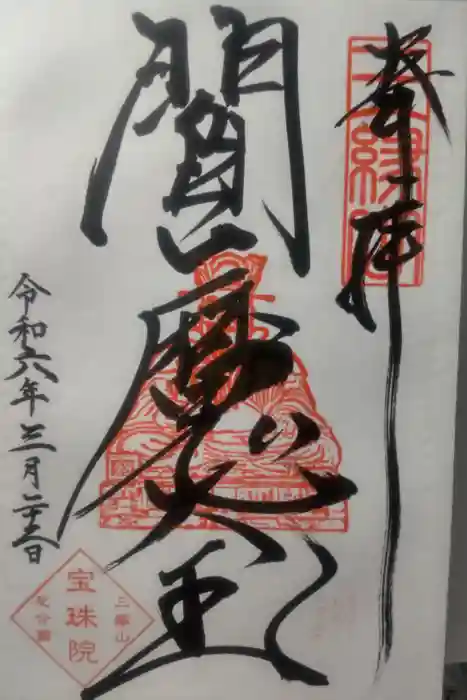 奉拝
閻魔大王
令和六年三月二十三日
三縁山
宝珠院
芝公園